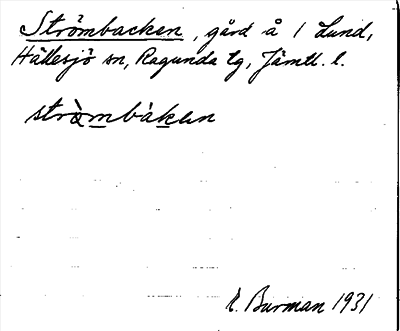 Strömbacken, gård å 1 Lund,
Hällesjö sn, Ragunda tg, Jämtl. l.
strò̱mbàken
E. Burman 1931